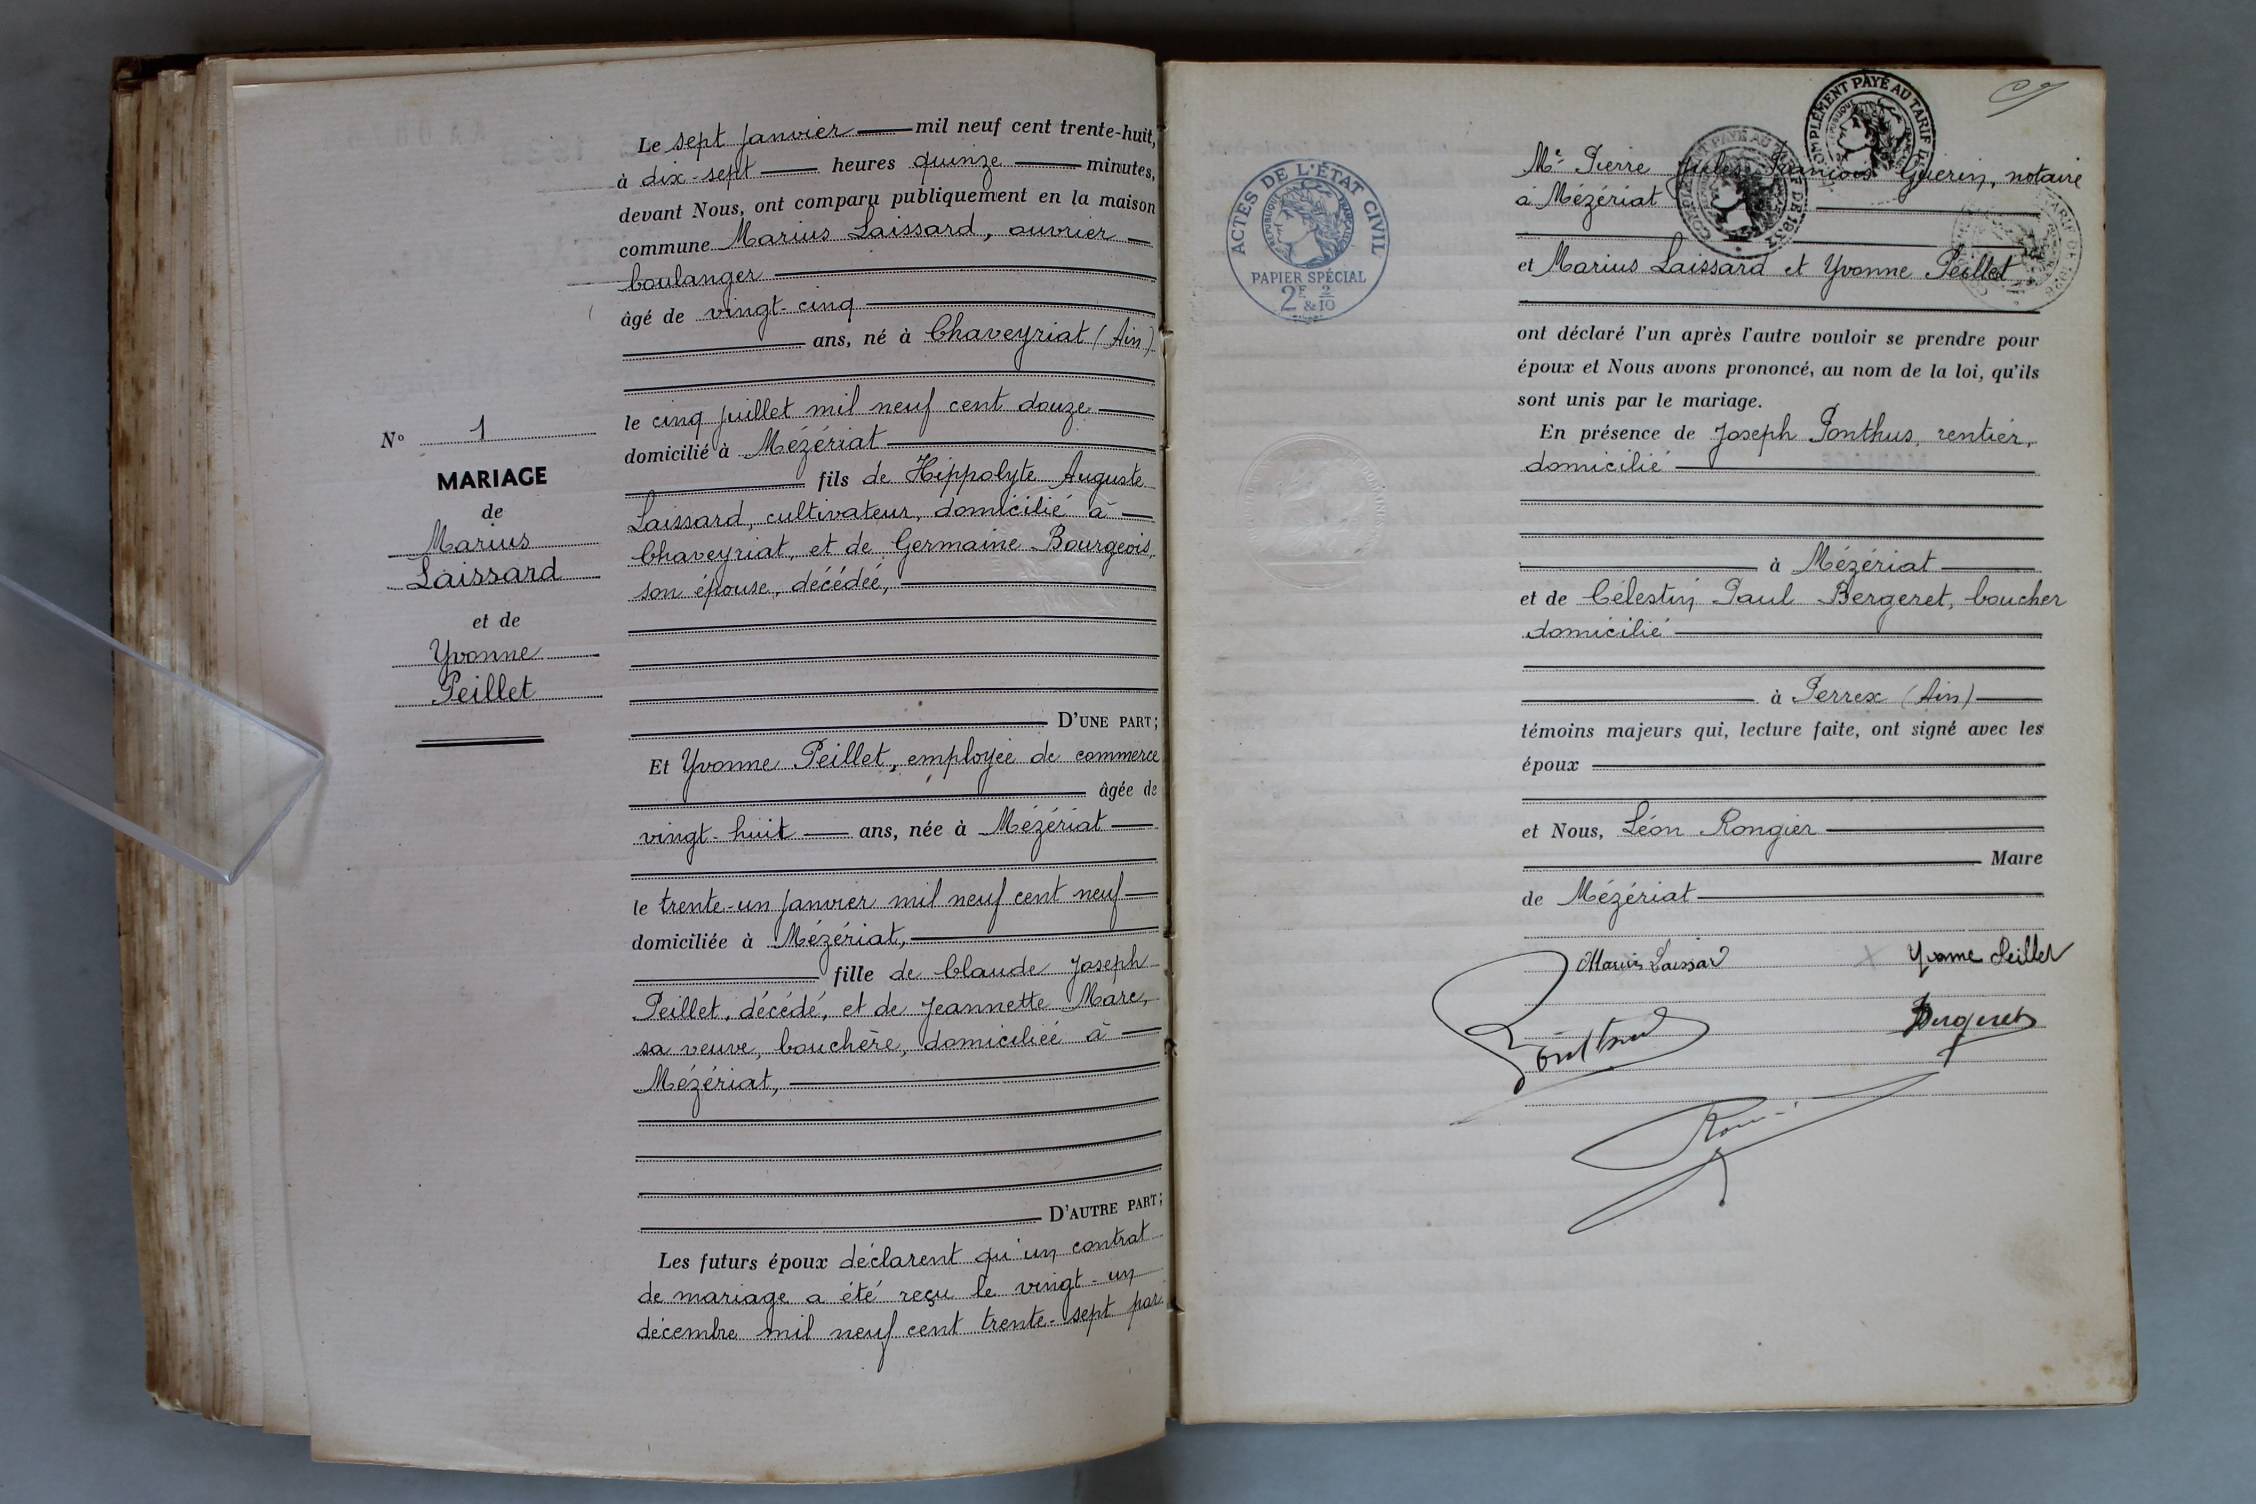 Le sept janvier mil neuf cent trente-huit,
à dix-sept heures quinze minutes,
devant Nous, ont comparu publiquement en la maison
commune Marius Laissard, ouvrier
boulanger
âgé de vingt-cinq
ans, né à Chaveyriat (Ain)
le cinq juillet mil neuf cent douze
domicilié à Mézériat
fils de Hippolyte Auguste
Laissard, cultivateur, domicilié à
Chaveyriat, et de Germaine Bourgeois,
son épouse, décédée,
D'UNE PART;
Et Yvonne Peillet, employée de commerce
âgée de
vingt-huit ans, née à Mézériat
le trente-un janvier mil neuf cent neuf
domiciliée à Mézériat,
fille de Claude Joseph
Peillet, décédé, et de Jeannette Marc,
sa veuve, bouchère, domiciliée à
Mézériat,
D'AUTRE PART;
Les futurs époux déclarent qu'un contrat
de mariage a été reçu le vingt-un
décembre mil neuf cent trente-sept par
N° 1
MARIAGE
de
Marius
Laissard
et de
Yvonne
Peillet
COMPLÉMENT PAYÉ AU TARIF DE
COMPLÉMENT PAYÉ AU TARIF DE 1937
ACTES DE L'ÉTAT CIVIL
RÉPUBLIQUE FRANÇAISE
PAPIER SPÉCIAL
2F & 2/10
Me Pierre Jules François Guérin, notaire
à Mézériat
et Marius Laissard et Yvonne Peillet
ont déclaré l'un après l'autre vouloir se prendre pour
époux et Nous avons prononcé, au nom de la loi, qu'ils
sont unis par le mariage.
En présence de Joseph Ponthus, rentier,
domicilié
à Mézériat
et de Célestin Paul Bergeret, boucher
domicilié
à Perrex (Ain)
témoins majeurs qui, lecture faite, ont signé avec les
époux
et Nous, Léon Rongier
Maire
de Mézériat
Marius Laissard Yvonne Peillet
Ponthus Bergeret